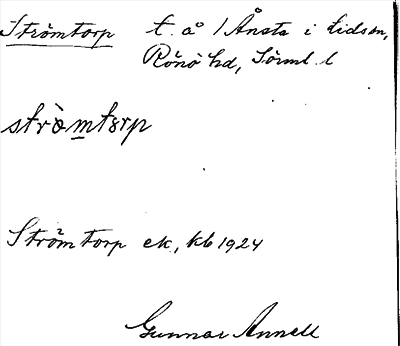 Strömtorp t. å 1 Ånsta i Lids sn,
Rönö hd, Sörml. l
strò̈mtorp
Strömtorp ek, kb 1924
Gunnar Annell